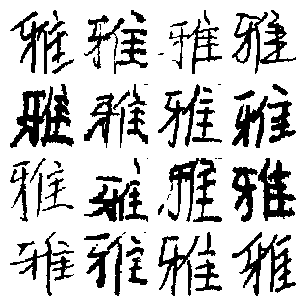 雅雅雅雅
雅雅雅雅
雅雅雅雅
雅雅雅雅